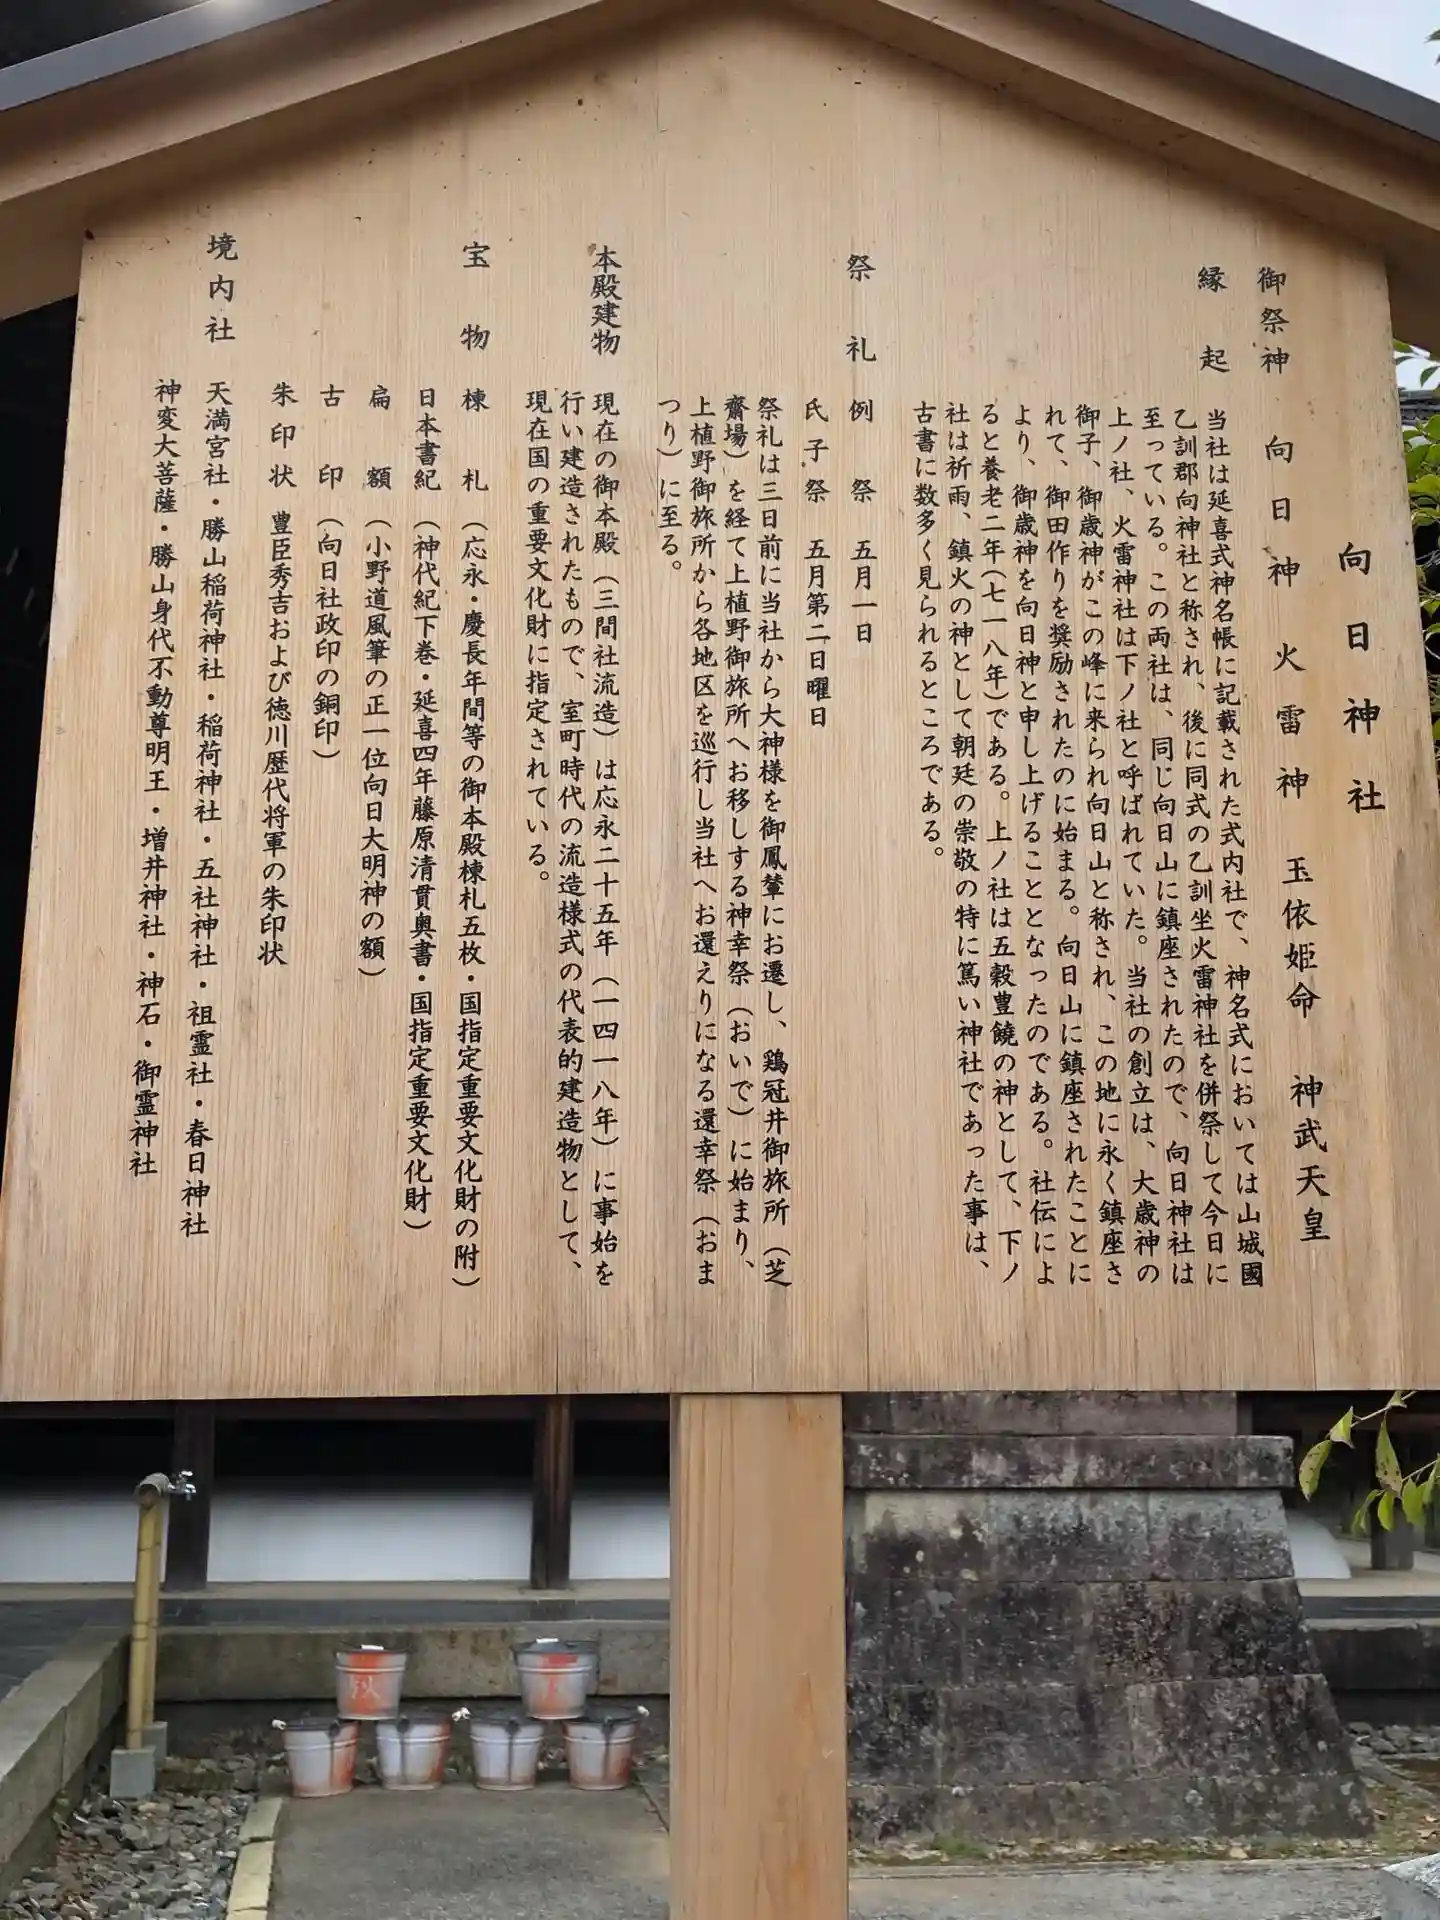 向日神社
御祭神 向日神 火雷神 玉依姫命 神武天皇
縁起
当社は延喜式神名帳に記載された式内社で、神名式においては山城國
乙訓郡向神社と称され、後に同式の乙訓坐火雷神社を併祭して今日に
至っている。この両社は、同じ向日山に鎮座されたので、向日神社は
上ノ社、火雷神社は下ノ社と呼ばれていた。当社の創立は、大歳神の
御子、御歳神がこの峰に来られ向日山と称され、この地に永く鎮座さ
れて、御田作りを奨励されたのに始まる。向日山に鎮座されたことに
より、御歳神を向日神と申し上げることとなったのである。社伝によ
ると養老二年(七一八年)である。上ノ社は五穀豊饒の神として、下ノ
社は祈雨、鎮火の神として朝廷の崇敬の特に篤い神社であった事は、
古書に数多く見られるところである。
祭礼 例祭 五月一日
氏子祭 五月第二日曜日
祭礼は三日前に当社から大神様を御鳳輦にお遷し、鶏冠井御旅所(芝
齋場)を経て上植野御旅所へお移しする神幸祭(おいで)に始まり、
上植野御旅所から各地区を巡行し当社へお還えりになる還幸祭(おま
つり)に至る。
本殿建物
現在の御本殿(三間社流造)は応永二十五年(一四一八年)に事始を
行い建造されたもので、室町時代の流造様式の代表的建造物として、
現在国の重要文化財に指定されている。
宝物 棟札(応永・慶長年間等の御本殿棟札五枚・国指定重要文化財の附)
日本書紀(神代紀下巻・延喜四年藤原清貫奥書・国指定重要文化財)
扁額(小野道風筆の正一位向日大明神の額)
古印(向日社政印の銅印)
朱印状 豊臣秀吉および徳川歴代将軍の朱印状
境内社 天満宮社・勝山稲荷神社・稲荷神社・五社神社・祖霊社・春日神社
神変大菩薩・勝山身代不動尊明王・増井神社・神石・御霊神社